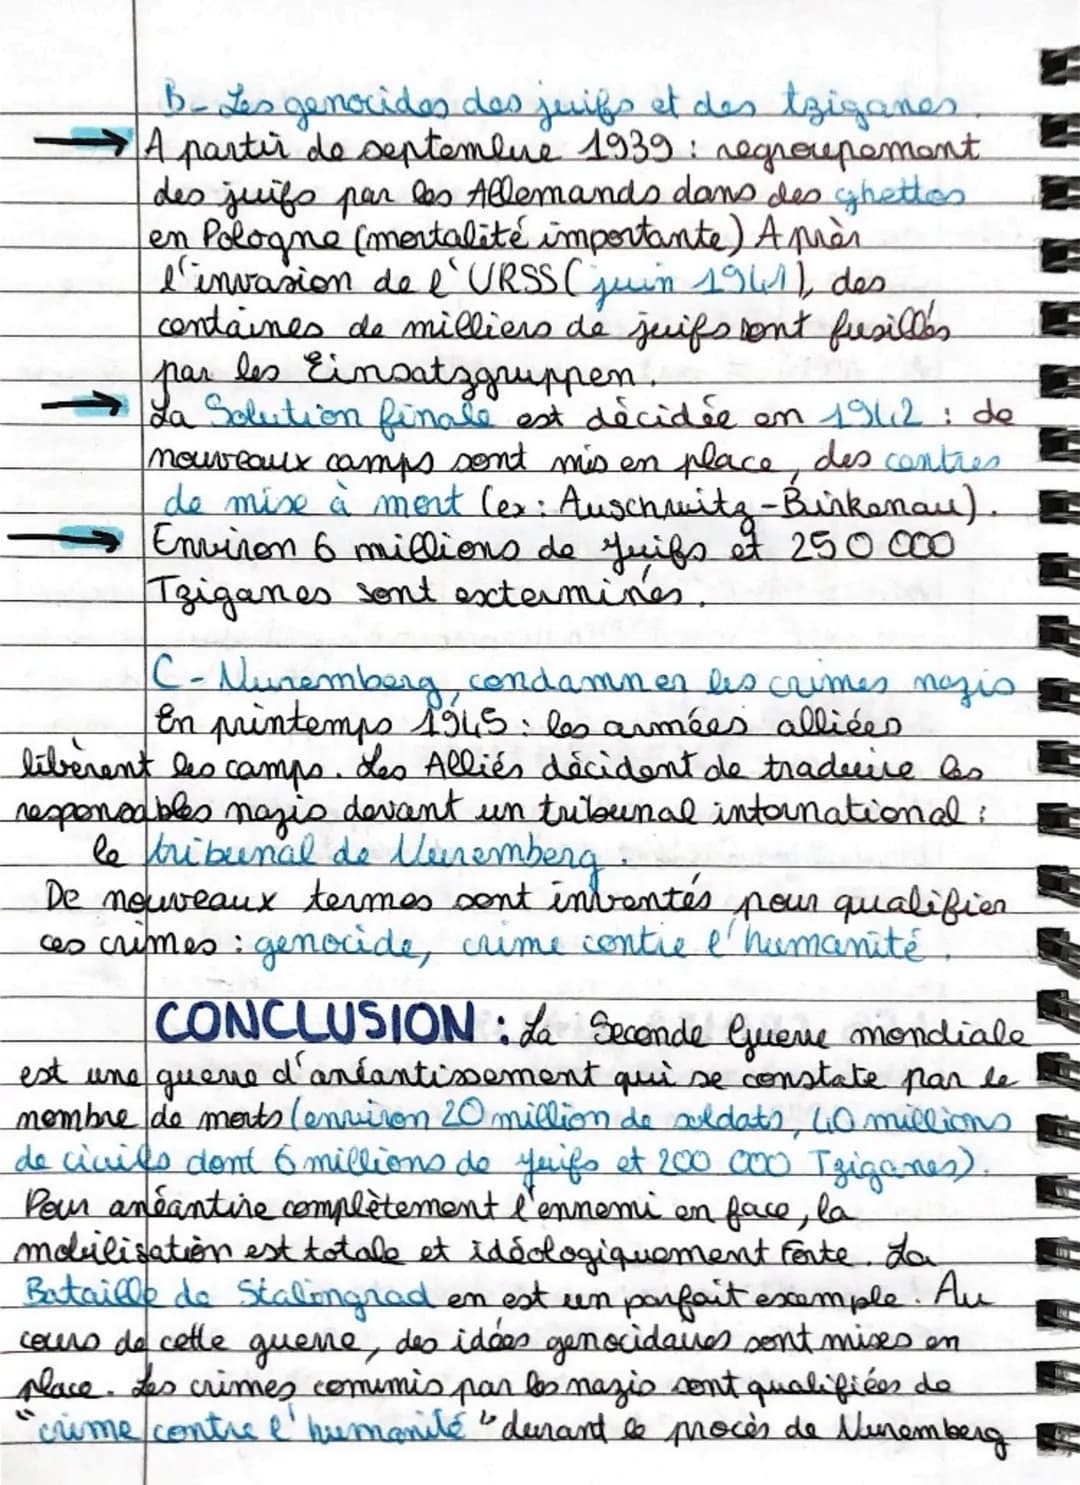 B- Les genocides des juifs et des tziganes.
A partir de septembre 1939 : regroupement
des juifs par les Allemands dans des ghettos
en Pologne (mortalité importante) Après
l'invasion de l'URSS (juin 1941), des
centaines de milliers de juifs sont fusillés
par les Einsatzgruppen.
La Solution finale est décidée en 1942 : de
nouveaux camps sont mis en place, des centres
de mise à mort (ex : Auschwitz-Birkenau).
Environ 6 millions de Juifs et 250 000
Tziganes sont exterminés.
C- Nuremberg, condamner les crimes nazis
En printemps 1945 : les armées alliées
libèrent les camps. Les Alliés décident de traduire les
responsables nazis devant un tribunal international :
le tribunal de Nuremberg.
De nouveaux termes sont inventés pour qualifier
ces crimes : genocide, crime contre l'humanité.
CONCLUSION : La Seconde Guerre mondiale
est une guerre d'anéantissement qui se constate par le
nombre de morts (environ 20 million de soldats, 40 millions
de civils dont 6 millions de Juifs et 200 000 Tziganes).
Pour anéantire complètement l'ennemi en face, la
mobilisation est totale et idéologiquement forte. La
Bataille de Stalingrad en est un parfait exemple. Au
cours de cette guerre, des idées genocidaires sont mises en
place. Les crimes commis par les nazis sont qualifiés de
"crime contre l'humanité" durant le procès de Nuremberg